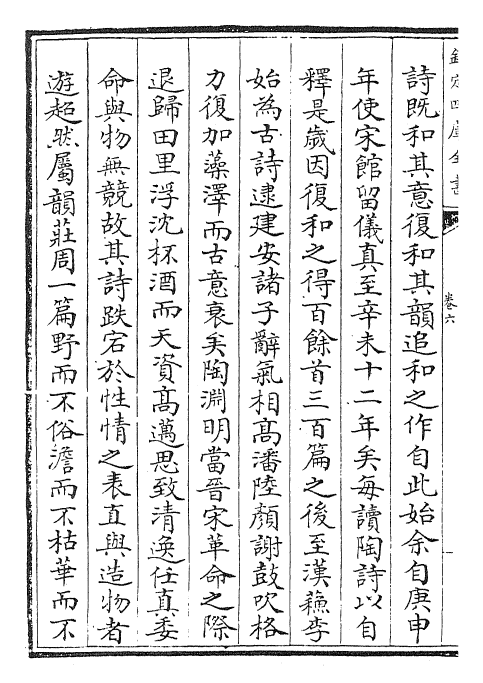 欽定四庫全書
卷六
詩既和其意復和其韻追和之作自此始余自庚申
年使宋館留儀真至辛未十二年矣每讀陶詩以自
釋是歲因復和之得百餘首三百篇之後至漢蘇李
始為古詩逮建安諸子辭氣相髙潘陸顔謝鼓吹格
力復加藻澤而古意衰矣陶淵明當晉宋革命之際
退歸田里浮沈杯酒而天資髙邁思致清逸任真委
命與物無競故其詩跌宕於性情之表直與造物者
遊超然屬韻莊周一篇野而不俗澹而不枯華而不